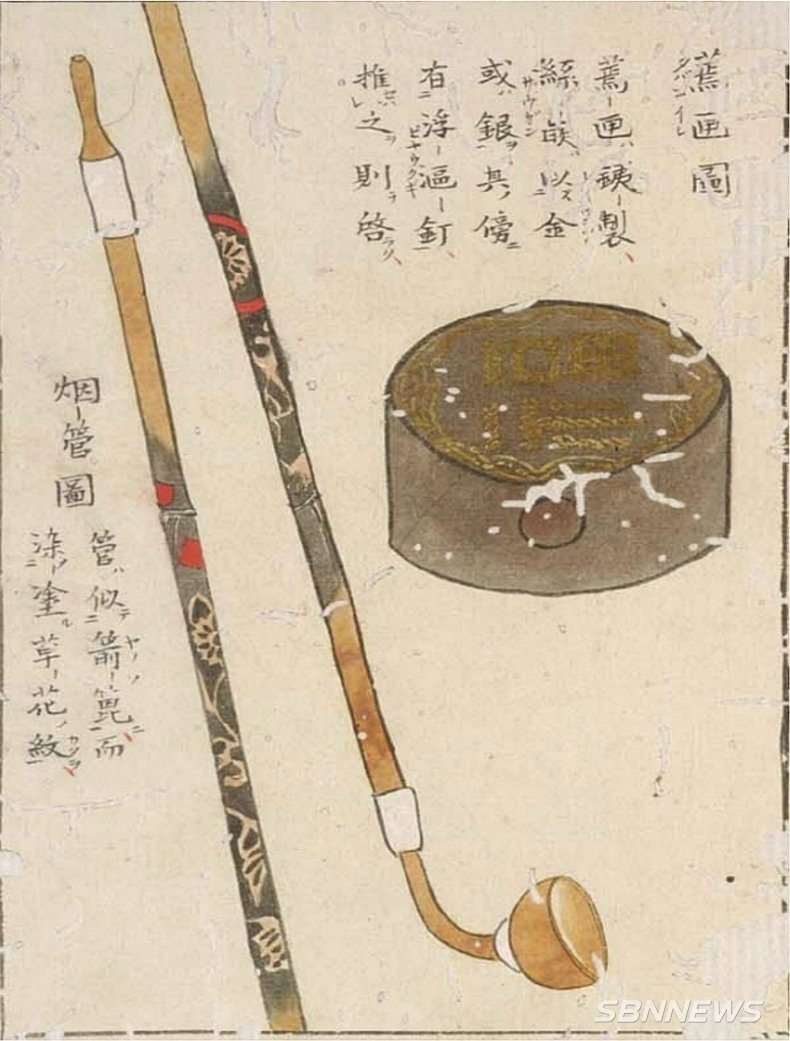 蔫匣圖
蔫匣銕製
絲嵌以金
或銀其傍
有浮漚釘
推之則啓
烟管圖
管似箭箆而
染塗草花紋
SBNNEWS